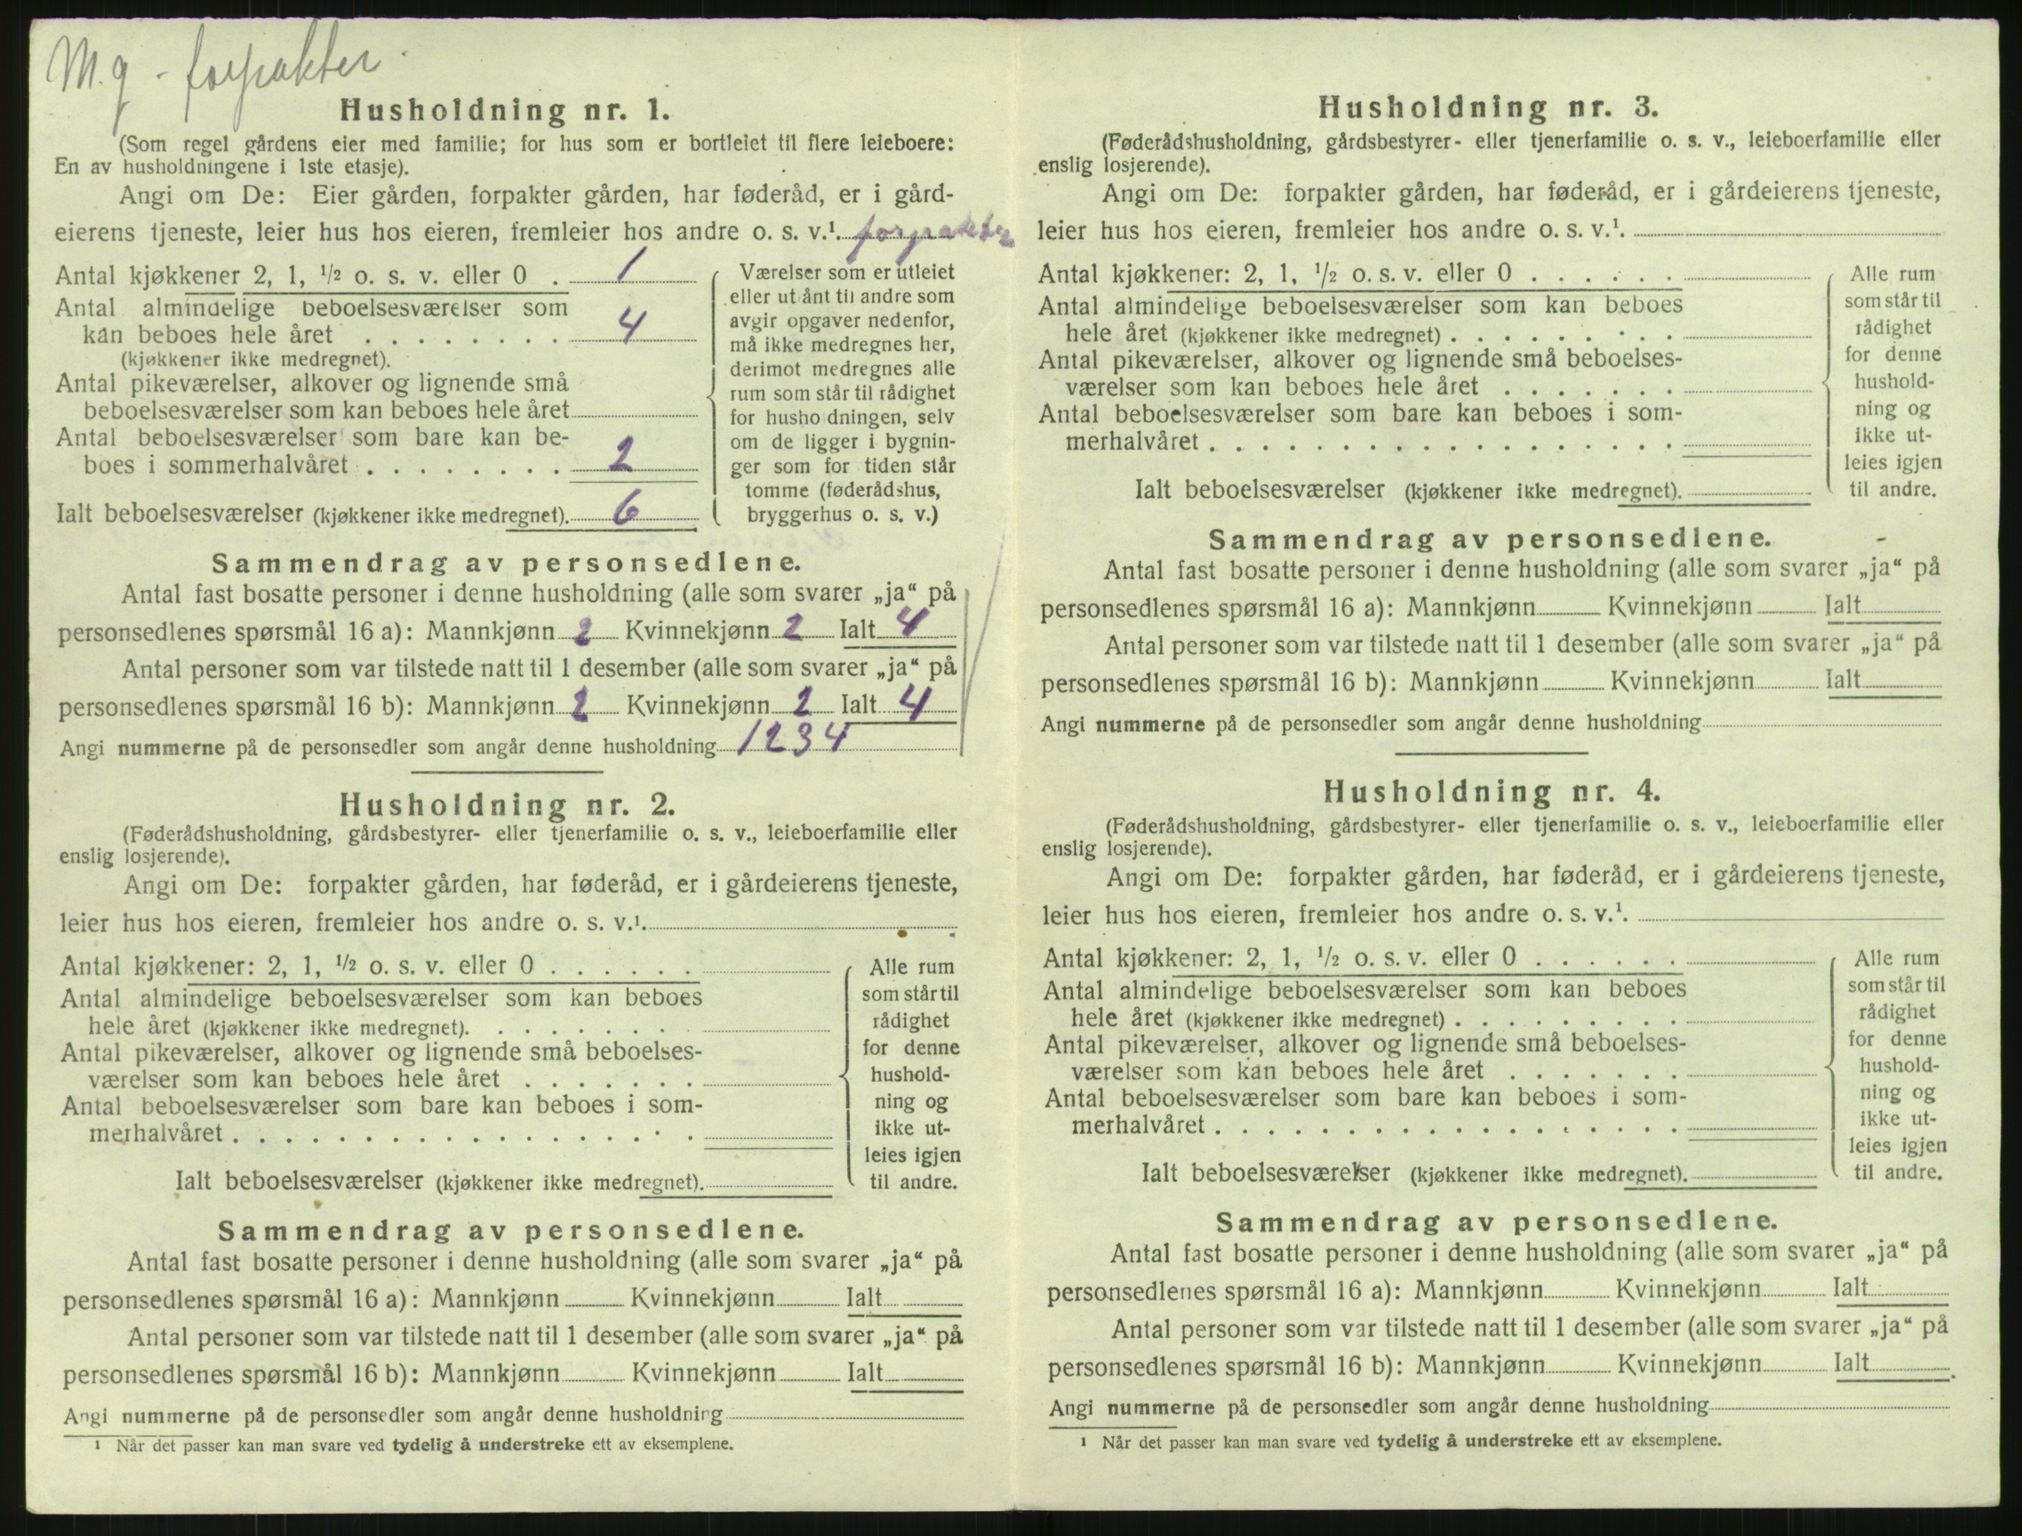 M.g - forpakter.
Husholdning nr. 1.
(Som regel gårdens eier med familie; for hus som er bortleiet til flere leieboere:
En av husholdningene i 1ste etasje).
Angi om De: Eier gården, forpakter gården, har føderåd, er i gård-
eierens tjeneste, leier hus hos eieren, fremleier hos andre o. s. v.¹. forpakter
Antal kjøkkener 2, 1, ½ o. s. v. eller 0 . 1
Antal almindelige beboelsesværelser som
kan beboes hele året . . . . . . . . 4
(kjøkkener ikke medregnet).
Antal pikeværelser, alkover og lignende små
beboelsesværelser som kan beboes hele året
Antal beboelsesværelser som bare kan be-
boes i sommerhalvåret . . . . . . . . 2
Ialt beboelsesværelser (kjøkkener ikke medregnet). 6
Værelser som er utleiet
eller utlånt til andre som
avgir opgaver nedenfor,
må ikke medregnes her,
derimot medregnes alle
rum som står til rådighet
for husholdningen, selv
om de ligger i bygnin-
ger som for tiden står
tomme (føderådshus,
bryggerhus o. s. v.)
Sammendrag av personsedlene.
Antal fast bosatte personer i denne husholdning (alle som svarer „ja“ på
personsedlenes spørsmål 16 a): Mannkjønn 2 Kvinnekjønn 2 Ialt 4
Antal personer som var tilstede natt til 1 desember (alle som svarer „ja“ på
personsedlenes spørsmål 16 b): Mannkjønn 2 Kvinnekjønn 2 Ialt 4
Angi nummerne på de personsedler som angår denne husholdning 1234
Husholdning nr. 2.
(Føderådshusholdning, gårdsbestyrer- eller tjenerfamilie o. s. v., leieboerfamilie eller
enslig losjerende).
Angi om De: forpakter gården, har føderåd, er i gårdeierens tjeneste,
leier hus hos eieren, fremleier hos andre o. s. v.¹.
Antal kjøkkener: 2, 1, ½ o. s. v. eller 0 . . . . . .
Antal almindelige beboelsesværelser som kan beboes
hele året (kjøkkener ikke medregnet). . . . . . . . .
Antal pikeværelser, alkover og lignende små beboelses-
værelser som kan beboes hele året . . . . . . .
Antal beboelsesværelser som bare kan beboes i som-
merhalvåret . . . . . . . . . . . . . . . . . .
Ialt beboelsesværelser (kjøkkener ikke medregnet).
Alle rum
som står til
rådighet
for denne
hushold-
ning og
ikke ut-
leies igjen
til andre.
Sammendrag av personsedlene.
Antal fast bosatte personer i denne husholdning (alle som svarer „ja“ på
personsedlenes spørsmål 16 a): Mannkjønn Kvinnekjønn Ialt
Antal personer som var tilstede natt til 1 desember (alle som svarer „ja“ på
personsedlenes spørsmål 16 b): Mannkjønn Kvinnekjønn Ialt
Angi nummerne på de personsedler som angår denne husholdning
¹ Når det passer kan man svare ved tydelig å understreke ett av eksemplene.
Husholdning nr. 3.
(Føderådshusholdning, gårdsbestyrer- eller tjenerfamilie o. s. v., leieboerfamilie eller
enslig losjerende).
Angi om De: forpakter gården, har føderåd, er i gårdeierens tjeneste,
leier hus hos eieren, fremleier hos andre o. s. v.¹.
Antal kjøkkener: 2, 1, ½ o. s. v. eller 0 . . . . . .
Antal almindelige beboelsesværelser som kan beboes
hele året (kjøkkener ikke medregnet) . . . . . . . . .
Antal pikeværelser, alkover og lignende små beboelses-
værelser som kan beboes hele året . . . . . . .
Antal beboelsesværelser som bare kan beboes i som-
merhalvåret . . . . . . . . . . . . . . . . . .
Ialt beboelsesværelser (kjøkkener ikke medregnet).
Alle rum
som står til
rådighet
for denne
hushold-
ning og
ikke ut-
leies igjen
til andre.
Sammendrag av personsedlene.
Antal fast bosatte personer i denne husholdning (alle som svarer „ja“ på
personsedlenes spørsmål 16 a): Mannkjønn Kvinnekjønn Ialt
Antal personer som var tilstede natt til 1 desember (alle som svarer „ja“ på
personsedlenes spørsmål 16 b): Mannkjønn Kvinnekjønn Ialt
Angi nummerne på de personsedler som angår denne husholdning
Husholdning nr. 4.
(Føderådshusholdning, gårdsbestyrer- eller tjenerfamilie o. s. v., leieboerfamilie eller
enslig losjerende).
Angi om De: forpakter gården, har føderåd, er i gårdeierens tjeneste,
leier hus hos eieren, fremleier hos andre o. s. v.¹.
Antal kjøkkener: 2, 1, ½ o. s. v. eller 0 . . . . . .
Antal almindelige beboelsesværelser som kan beboes
hele året (kjøkkener ikke medregnet) . . . . . . . . .
Antal pikeværelser, alkover og lignende små beboelses-
værelser som kan beboes hele året . . . . . . .
Antal beboelsesværelser som bare kan beboes i som-
merhalvåret . . . . . . . . . . . . . . . . . .
Ialt beboelsesværelser (kjøkkener ikke medregnet).
Alle rum
som står til
rådighet
for denne
hushold-
ning og
ikke ut-
leies igjen
til andre.
Sammendrag av personsedlene.
Antal fast bosatte personer i denne husholdning (alle som svarer „ja“ på
personsedlenes spørsmål 16 a): Mannkjønn Kvinnekjønn Ialt
Antal personer som var tilstede natt til 1 desember (alle som svarer „ja“ på
personsedlenes spørsmål 16 b): Mannkjønn Kvinnekjønn Ialt
Angi nummerne på de personsedler som angår denne husholdning
¹ Når det passer kan man svare ved tydelig å understreke ett av eksemplene.